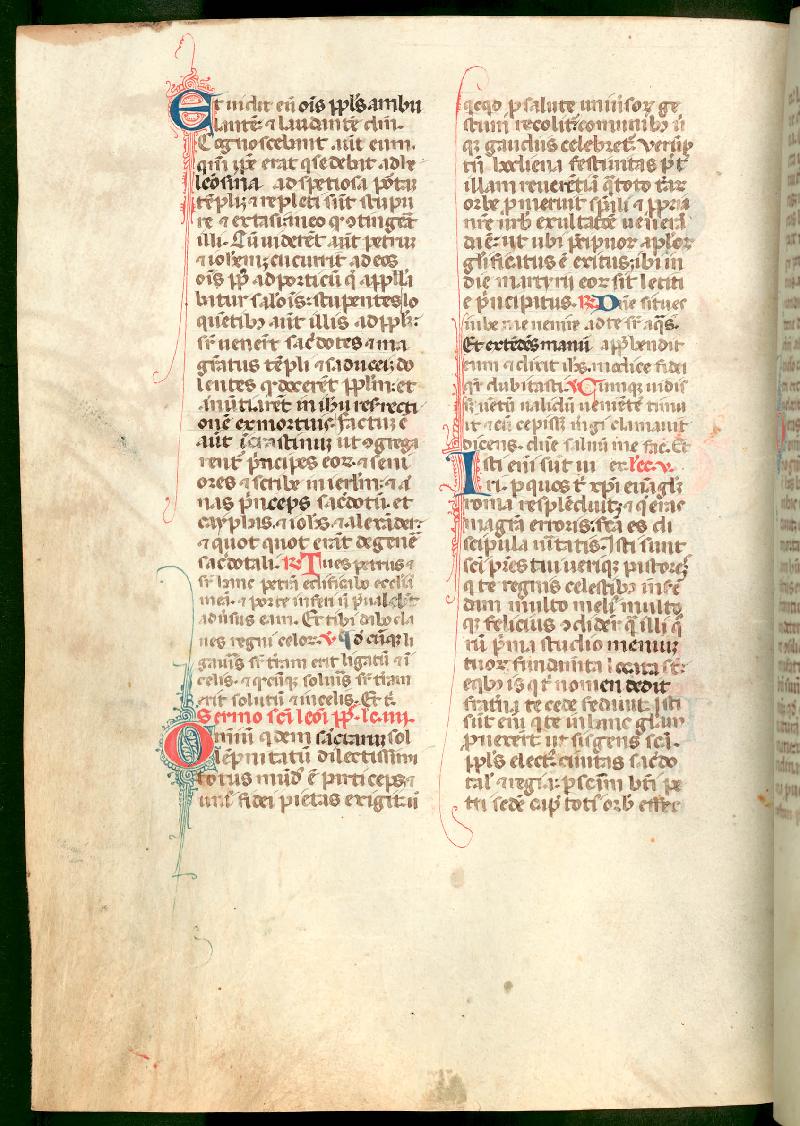 Et uidit eu ois ppls ambu
lante & laudante dm.
Cognoscebant aut eum.
qm ipe erat q sedebat ad ele
leosina ad spetiosa porta
tepli & repleti sut stupo
re & extasi in eo q otingerat
illi. Cu uideret aut petru
& iohem cucurrit ad eos
ois ppls ad porticu q appella
bitur salois: stupentes lo
quetib aut illis ad pplm:
sr uenert sacdotes & ma
gratus tepli & saducei do
lentes q doceret pplm: et
anutiaret in ihu resrecti
one ex mortuis. factu e
aut i crastinu ut ogrega
rent pncipes eor & seni
ores & scribe in ierlm: & a
nas pnceps sacdotu. et
cayphas. & iohs & alexader
& quot quot erat de gene
sacdotali. R Tu es petrus &
sr hanc petra edificabo eccla
mea. & porte inferi n pualebut
adusus eam. Et tibi dabo cla
ues regni celor. V Qdcuq li
gauis sr tram erit ligatu & i
celis. & qdcuq soluis sr tram
erit solutu & in celis. Et t.
Sermo sci leoi pp. lc. iiii.
Omniu qdem sactaru sol
lepnitatu dilectissimi
totus mud e particeps &
uni fidei pietas exigit u
qcqd p salute uniusor ge
stum recolit comunib u
q gaudiis celebret. Verup
tu hodierna festiuitas pt
illam reuerentia q toto trar
orbe pmeruit spali & ppria
nre urb exultatoe uenera
da e: ut ubi pcipuor aplor
glificatus e exitus: ibi in
die martyrii eor sit letiti
e pncipatus. R Dne si tu es
iube me uenire ad te sr aqs.
Et extedes manu apphendit
eum & dixit ihs. modice fidei
qr dubitasti. V Cumq uidis
s uetu ualidu ueniente timu
it & cu cepiss mgi clamauit
dicens. dne saluu me fac. Et
Isti eni sut ui et lec. v.
ri. p quos t xpi euagl
roma resplenduit & q eras
magra erroris: fca es di
scipula uitatis. Isti sunt
sci pres tui ueriq pastores
q te regnis celestib inse
dam multo meli multo
q felicius odidert q illi q
ru pma studio meniu
tuor fundamta locata st:
e qb is q t nomen dedit
fratna te cede feduit. Isti
sut eni q te in hanc gliam
puexert ut sis gens sca.
ppls elect. ciuitas sacdo
tal & regia: p scam bti pe
tri sede cap toti orb effec